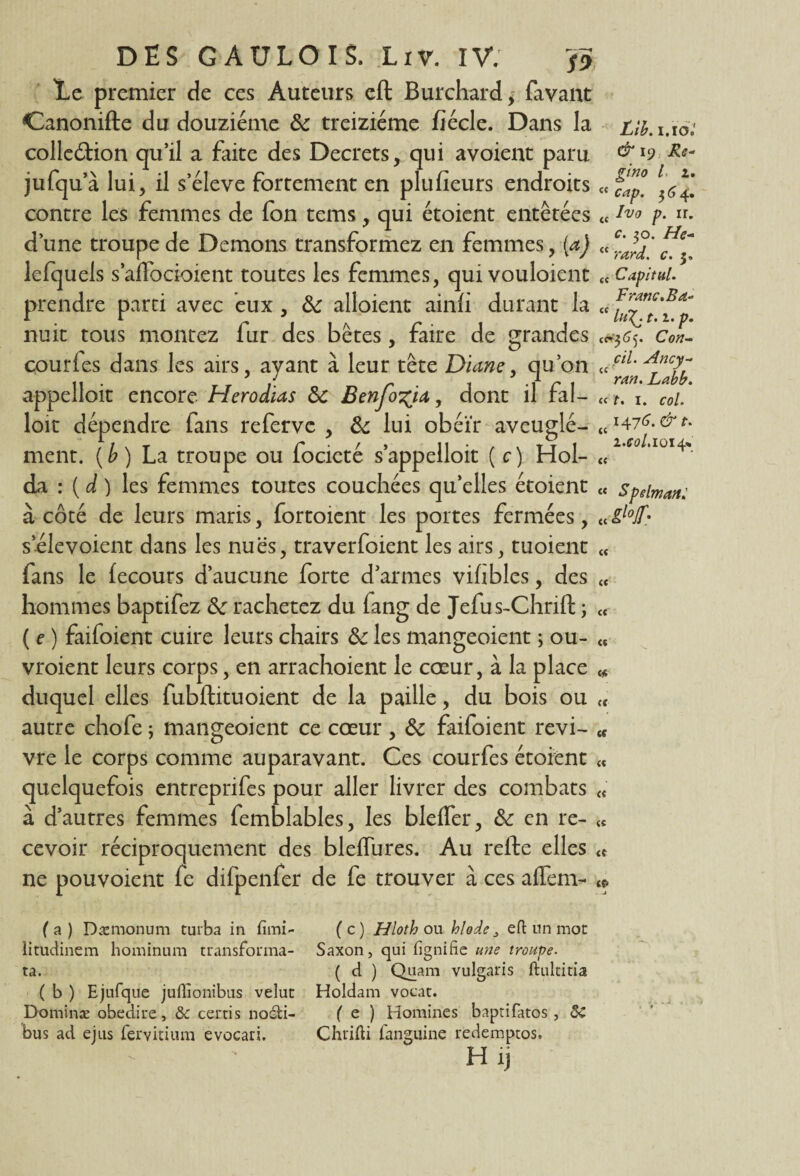 DES GAULOIS. LIV. IV. 59
Le premier de ces Auteurs eſt Burchard, ſavant
Canoniſte du douziéme & treiziéme ſiécle. Dans la
collection qu'il a faite des Decrets, qui avoient paru
juſqu'à lui, il s'éleve fortement en pluſieurs endroits «
contre les femmes de ſon tems, qui étoient entêtées «
d'une troupe de Demons transformez en femmes, (a) «
leſquels s'aſſocioient toutes les femmes, qui vouloient «
prendre parti avec eux, & alloient ainſi durant la «
nuit tous montez ſur des bêtes, faire de grandes «
courſes dans les airs, ayant à leur tête Diane, qu'on «
appelloit encore Herodias & Benſoʒia, dont il fal- «
loit dépendre ſans reſerve, & lui obéïr aveuglé- «
ment. (b) La troupe ou ſocieté s'appelloit (c) Hol- «
da : (d) les femmes toutes couchées qu'elles étoient «
à côté de leurs maris, ſortoient les portes fermées, «
s'élevoient dans les nuës, traverſoient les airs, tuoient «
ſans le ſecours d'aucune ſorte d'armes viſibles, des «
hommes baptiſez & rachetez du ſang de Jeſus-Chriſt ; «
(e) faiſoient cuire leurs chairs & les mangeoient ; ou- «
vroient leurs corps, en arrachoient le cœur, à la place «
duquel elles ſubſtituoient de la paille, du bois ou «
autre choſe ; mangeoient ce cœur, & faiſoient revi- «
vre le corps comme auparavant. Ces courſes étoient «
quelquefois entrepriſes pour aller livrer des combats «
à d'autres femmes ſemblables, les bleſſer, & en re- «
cevoir réciproquement des bleſſures. Au reſte elles «
ne pouvoient ſe diſpenſer de ſe trouver à ces aſſem- «
Lib. 1. 10.
& 19 Re-
gino l. 2.
cap. 364.
Ivo p. 11.
c. 30. He-
rard. c. 3.
Capitul.
Franc. Ba-
luʒ. t. 2. p.
365. Con-
cil. Ancy-
ran. Labb.
t. 1. col.
1476. & t.
2. col. 1014.
Spelman.
gloſſ.
(a) Dæmonum turba in ſimi-
litudinem hominum transforma-
ta.
(b) Ejuſque juſſionibus velut
Dominæ obedire, & certis nocti-
bus ad ejus ſervitium evocari.
(c) Hloth ou hlode, eſt un mot
Saxon, qui ſignifie une troupe.
(d) Quam vulgaris ſtultitia
Holdam vocat.
(e) Homines baptiſatos, &
Chriſti ſanguine redemptos.
H ij